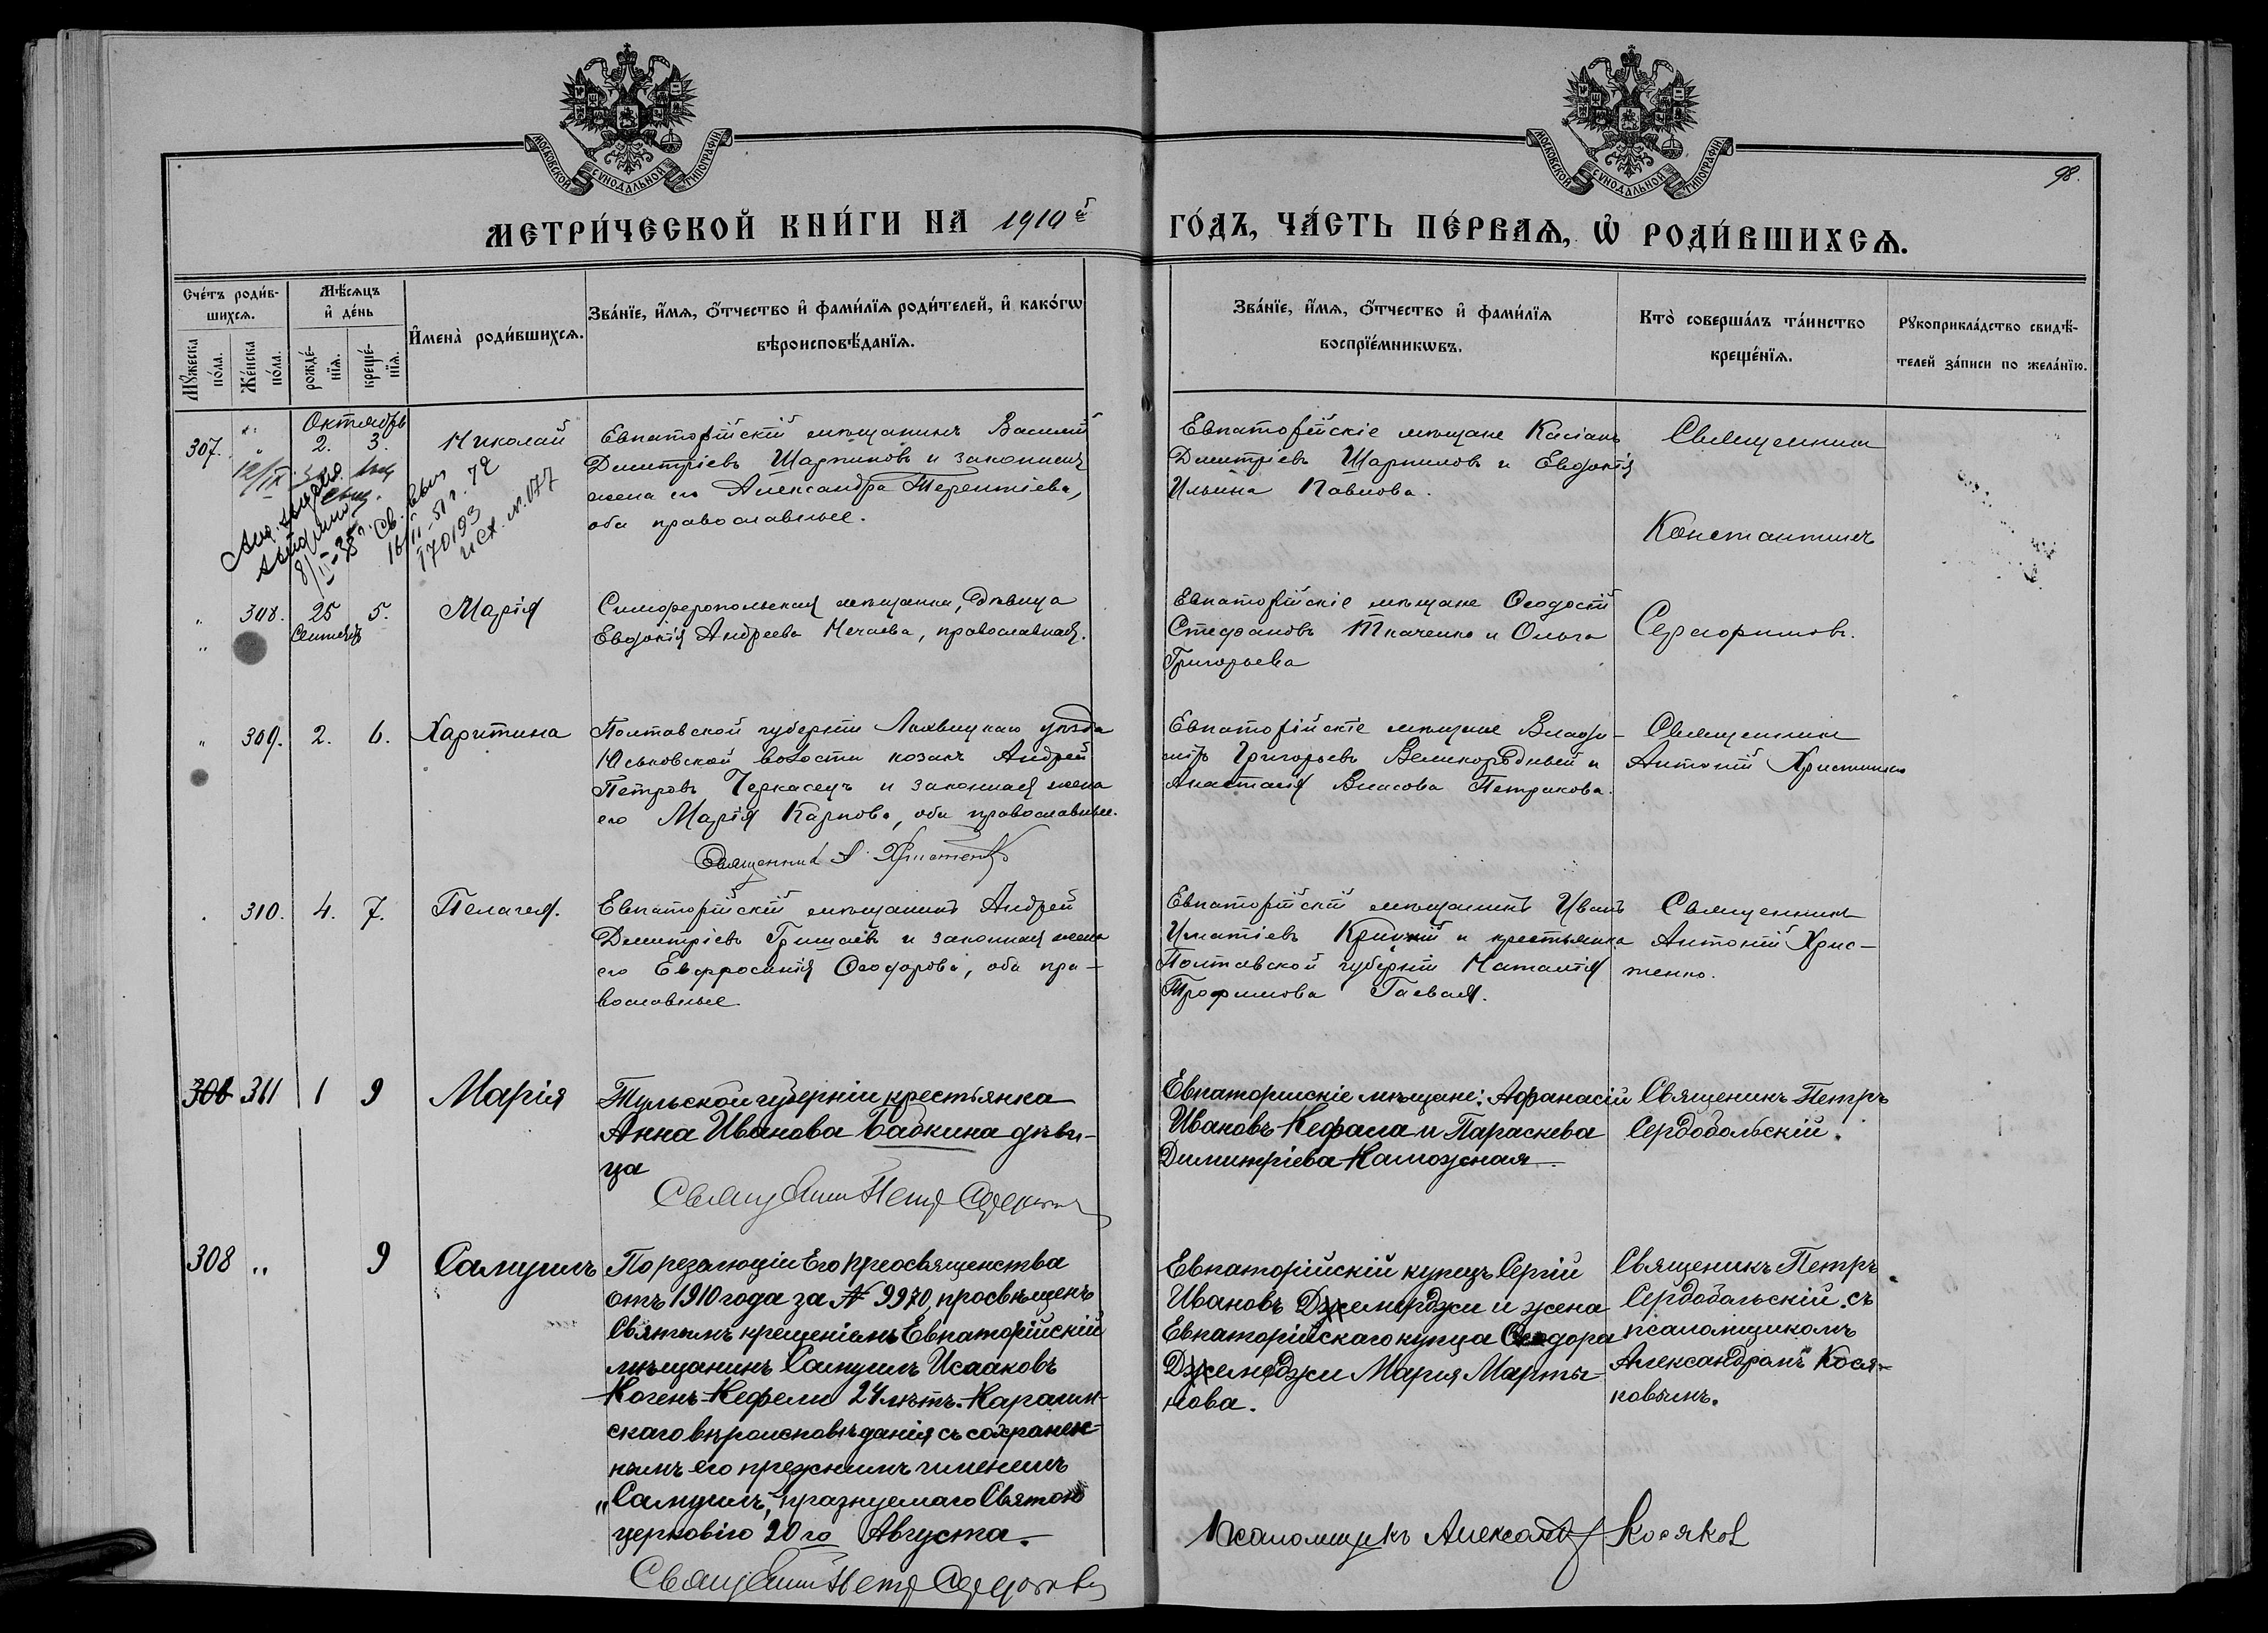 МОСКОВСКОЙ СѴНОДАЛЬНОЙ ТИПОГРАФІИ
МОСКОВСКОЙ СѴНОДАЛЬНОЙ ТИПОГРАФІИ
98.
МЕТРИ́ЧЕСКОЙ КНИ́ГИ НА 1910й
ГО́ДЪ, ЧА́СТЬ ПЕ́РВАѦ, Ѡ҆ РОДИ́ВШИХСѦ.
Сче́тъ роди́в-
шихсѧ.
Мꙋ́жеска
по́ла.
Же́нска
по́ла.
Мѣ́сѧцъ
и҆ де́нь
рожде́-
нїѧ.
креще́-
нїѧ.
И҆мена̀ роди́вшихсѧ.
Зва́нїе, и҆́мѧ, ѻ҆́тчество и҆ фами́лїѧ роди́телей, и҆ како́гѡ
вѣроисповѣ́данїѧ.
Зва́нїе, и҆́мѧ, ѻ҆́тчество и҆ фами́лїѧ
воспрїе́мникѡвъ.
Кто̀ соверша́лъ та́инство
креще́нїѧ.
Рꙋкоприкла́дство свидѣ́-
телей за́писи по жела́нїю.
Октябрь
307. " 2. 3. Николай
Евпаторійскій мѣщанинъ Василій
Димитріевъ Шарпиловъ и законная
жена его Александра Терентіева,
оба православные.
Евпаторійскіе мѣщане Касіанъ
Димитріевъ Шарпиловъ и Евдокія
Ильина Павлова.
Священникъ
Константинъ
16/II-51 г.
170193
исх. N. 077
" 308. 25 5. Марія
Сентябрь
Симферопольская мѣщанка, дѣвица
Евдокія Андреева Нечаева, православная.
Евпаторійскіе мѣщане Ѳеодосій
Стефановъ Ткаченко и Ольга
Григорьева
Серафимовъ.
" 309. 2. 6. Харитина
Полтавской губерніи Лохвицкаго уѣзда
Юськовской волости козакъ Андрей
Петровъ Черкасецъ и законная жена
его Марія Карпова, оба православные.
Священникъ А. Христенко
Евпаторійскіе мѣщане Влади-
міръ Григорьевъ Великородный и
Анастасія Власова Петракова.
Священникъ
Антоній Христенко
. 310. 4. 7. Пелагея.
Евпаторійскій мѣщанинъ Андрей
Димитріевъ Гришаевъ и законная жена
его Евфросинія Ѳеодорова, оба пра-
вославные.
Евпаторійскій мѣщанинъ Иванъ
Игнатіевъ Крицкій и крестьянка
Полтавской губерніи Наталія
Трофимова Гаевая.
Священникъ
Антоній Хрис-
тенко.
308 311 1 9 Марія
Тульской губерніи крестьянка
Анна Иванова Бабкина дѣви-
ца
Священникъ Петръ
Евпаторійскіе мѣщане: Афанасій
Ивановъ Кефала и Параскева
Димитріева Калюжная
Священикъ Петръ
Сердобольскій.
308 " 9 Самуилъ
По резолюціи Его Преосвященства
отъ 1910 года за № 9970, просвѣщенъ
Святымъ крещеніемъ Евпаторійскій
мѣщанинъ Самуилъ Исааковъ
Когенъ-Кефели 24 лѣтъ. Караим-
скаго вѣроисповѣданія съ сохранен-
нымъ его прежнимъ именемъ
„Самуилъ", празнуемаго Святою
церковію 20го Августа.
Священникъ Петръ
Евпаторійскій купецъ Сергій
Ивановъ Джемерджи и жена
Евпаторійскаго купца Ѳеодора
Джемерджи Мария Марты-
нова.
Священикъ Петръ
Сердобольскій. съ
псаломщикомъ
Александромъ Кося-
ковымъ.
Псаломщикъ Александръ Косяковъ